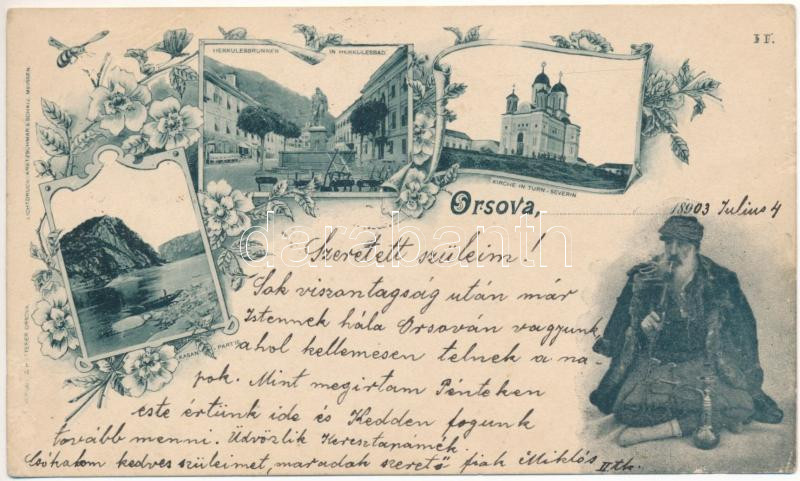 HERKULESBRUNNEN IN HERKULESBAD
KIRCHE IN TURN-SEVERIN
Orsova, 18903 Julius 4
KASAN PARTIE
LICHTDRUCK: KRETZSCHMAR & SCHATZ, MEISSEN.
ORSOVA.
darabanth
Szeretett szüleim!
Sok viszontagság után már
Istennek hála Orsován vagyunk,
ahol kellemesen telnek a na-
pok. Mint megirtam Pénteken
este értünk ide és Kedden fogunk
tovább menni. Üdvözlik Keresztapámék.
Csókolom kedves szüleimet, maradok szerető fiok Miklós